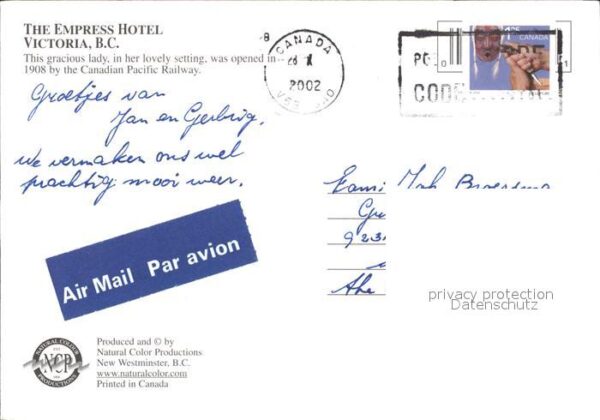 THE EMPRESS HOTEL
VICTORIA, B.C.
This gracious lady, in her lovely setting, was opened in
1908 by the Canadian Pacific Railway.
CANADA
2002
CANADA
CODE
Groetjes van
Jan en Gerbrig.
We vermaken ons wel
prachtig mooi weer.
Fam
923
Air Mail Par avion
privacy protection
Datenschutz
NATURAL COLOUR
NCP
PRODUCTIONS
Produced and © by
Natural Color Productions
New Westminster, B.C.
www.naturalcolor.com
Printed in Canada